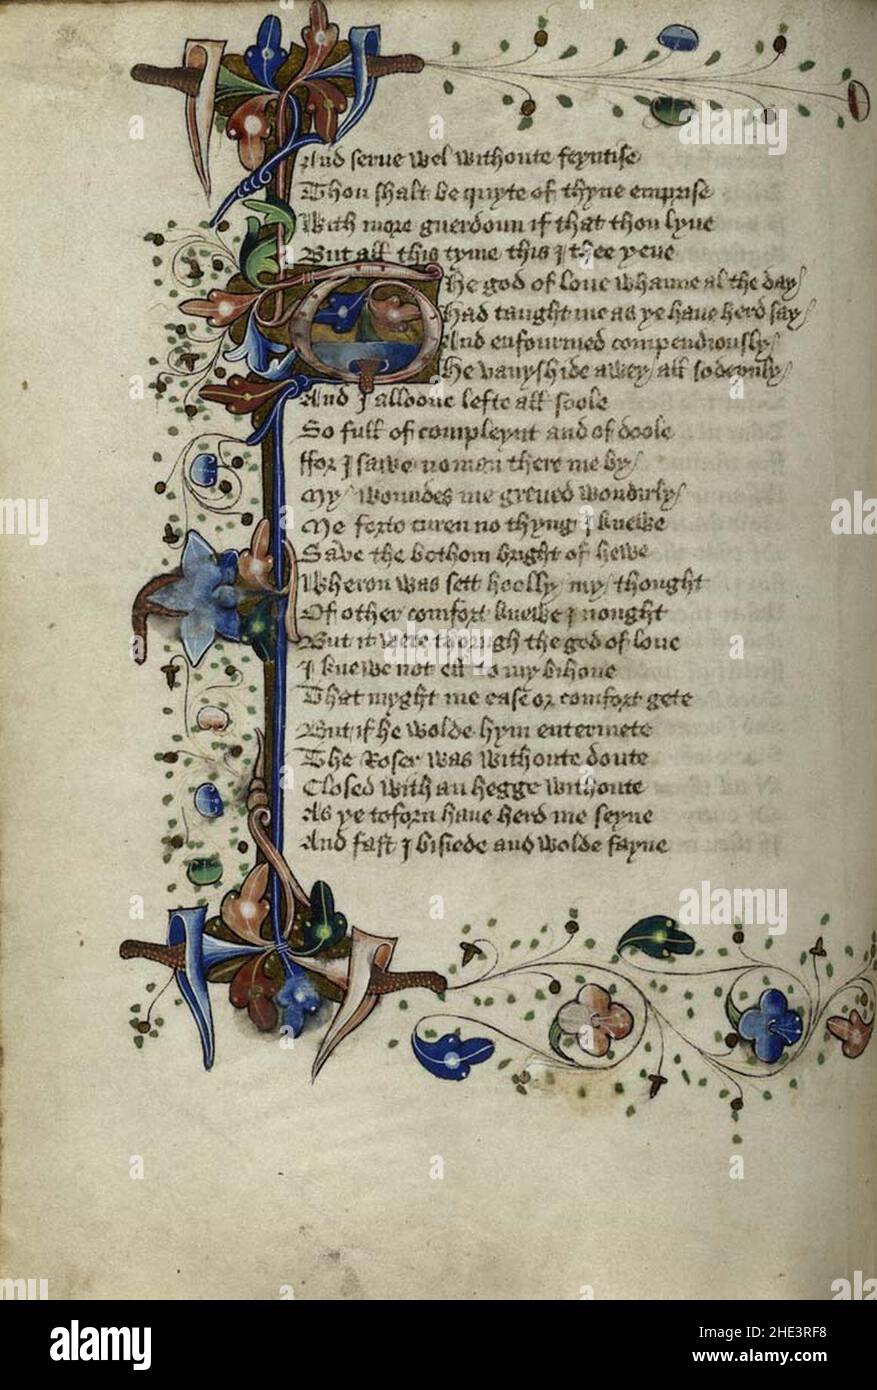 And serue wel withoute feyntise
Thou shalt be quyte of thyne emprise
With more guerdoun if that thou lyue
But all this tyme this I thee yeue
The god of loue whanne al the day
Had taught me as ye haue herd say
And enfourmed compendiously
He vanyshide awey all sodeynly
And I alloone lefte all soole
So full of compleynt and of doole
ffor I sawe no man there me by
My woundes me greued wondirly
Me forto curen no thyng I knewe
Save the bothom bright of hewe
Wheron was sett hoolly my thought
Of other comfort knewe I nought
But it were thorugh the god of loue
I knewe not ell to my bihoue
That myght me ease or comfort gete
But if he wolde hym entermete
The Roser was withoute doute
Closed with an hegge withoute
As ye toforn haue herd me seyne
And fast I bisiede and wolde fayne
alamy
Image ID: 2HE3RF8
www.alamy.com